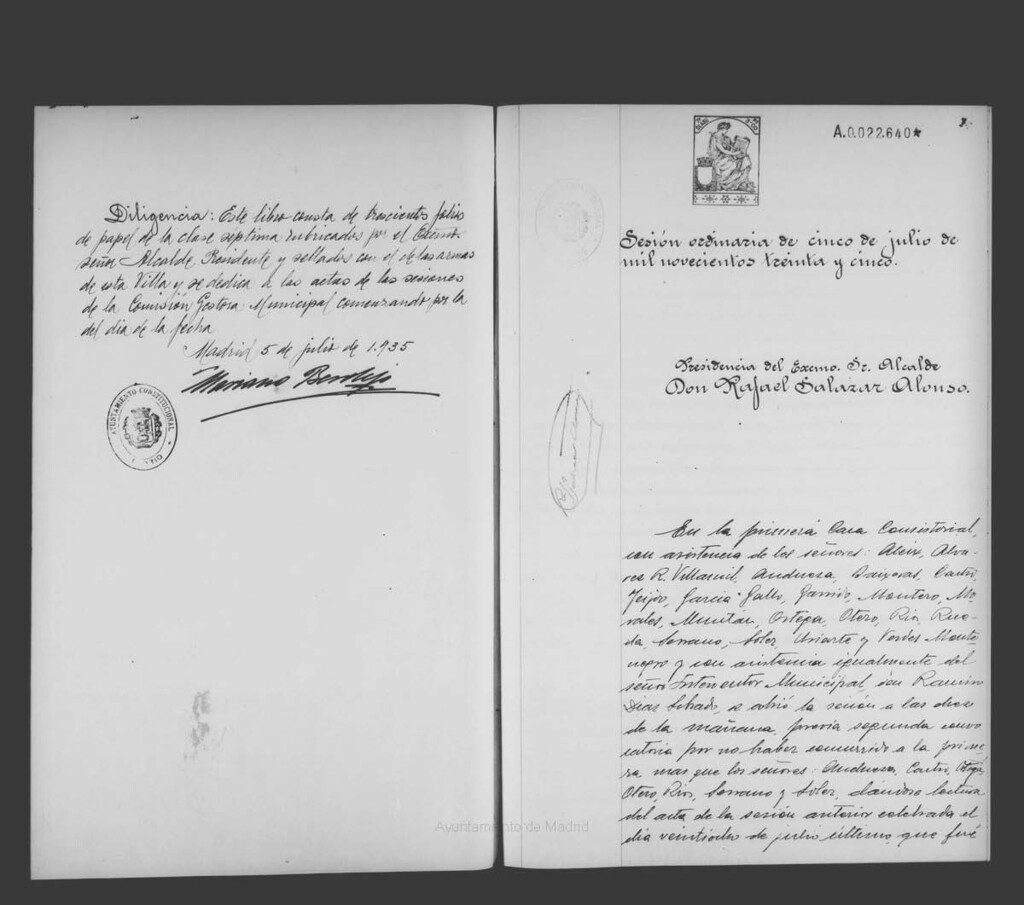 Diligencia: Este libro consta de trescientos folios
de papel de la clase septima rubricados por el Excmo.
señor Alcalde Presidente y sellados con el de las armas
de esta Villa y se dedica a las actas de las sesiones
de la Comisión Gestora Municipal comenzando por la
del dia de la fecha
Madrid 5 de julio de 1.935
Mariano Berdejo
AYUNTAMIENTO CONSTITUCIONAL
A.0.022.640*
Sesión ordinaria de cinco de julio de
mil novecientos treinta y cinco.
Presidencia del Excmo. Sr. Alcalde
Don Rafael Salazar Alonso.
En la primera Casa Consistorial,
con asistencia de los señores: Aleix, Alva-
rez R. Villamil, Andueza, Baixeras, Castro,
Feijóo, García Gallo, Garrido, Montero, Mo-
rales, Muntán, Ortega, Otero, Rios, Rue-
da, Serrano, Soler, Uriarte y Verdes Monte-
negro y con asistencia igualmente del
señor Interventor Municipal, don Ramiro
Dias, se abrió la sesión a las doce
de la mañana, previa segunda convo
catoria por no haber concurrido a la prime-
ra mas que los señores: Andueza, Castro, Ortega,
Otero, Rios, Serrano y Soler, dándose lectura
del acta de la sesión anterior celebrada el
dia veintiocho de julio último, que fué
Ayuntamiento de Madrid